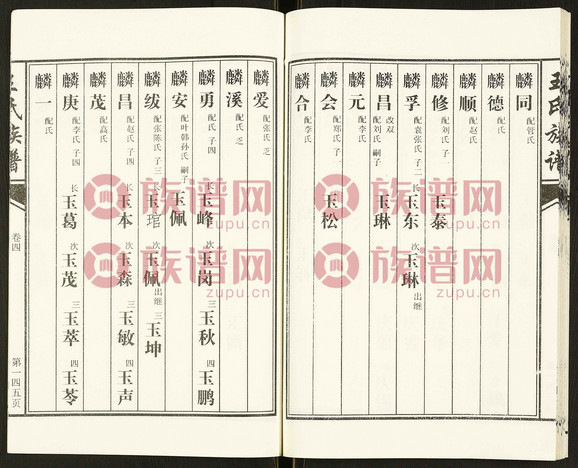 王氏族谱
麟同 配管氏
麟德 配氏
麟顺 配赵氏
麟修 配刘氏 子一 玉泰
麟孚 配袁张氏 子二 长玉东 次玉琳 出继
麟昌 改双 配刘氏 嗣子 玉琳
麟元 配李氏
麟会 配郑氏 子一 玉松
麟合 配李氏
麟爱 配张氏 乏
麟溪 配氏 乏
麟勇 配氏 子四 长玉峰 次玉岗 三玉秋 四玉鹏
麟安 配叶韩孙氏 嗣子 玉佩
麟绂 配张陈氏 子三 长玉琯 次玉佩 出继 三玉坤
麟昌 配赵氏 子四 长玉本 次玉森 三玉敏 四玉声
麟茂 配高氏
麟庚 配李氏 子四 长玉葛 次玉茂 三玉萃 四玉苓
麟一 配氏
王氏族谱
卷四
第一四五页
族谱网
zupu.cn
族谱网
zupu.cn
族谱网
zupu.cn
族谱网
zupu.cn
族谱网
zupu.cn
族谱网
zupu.cn